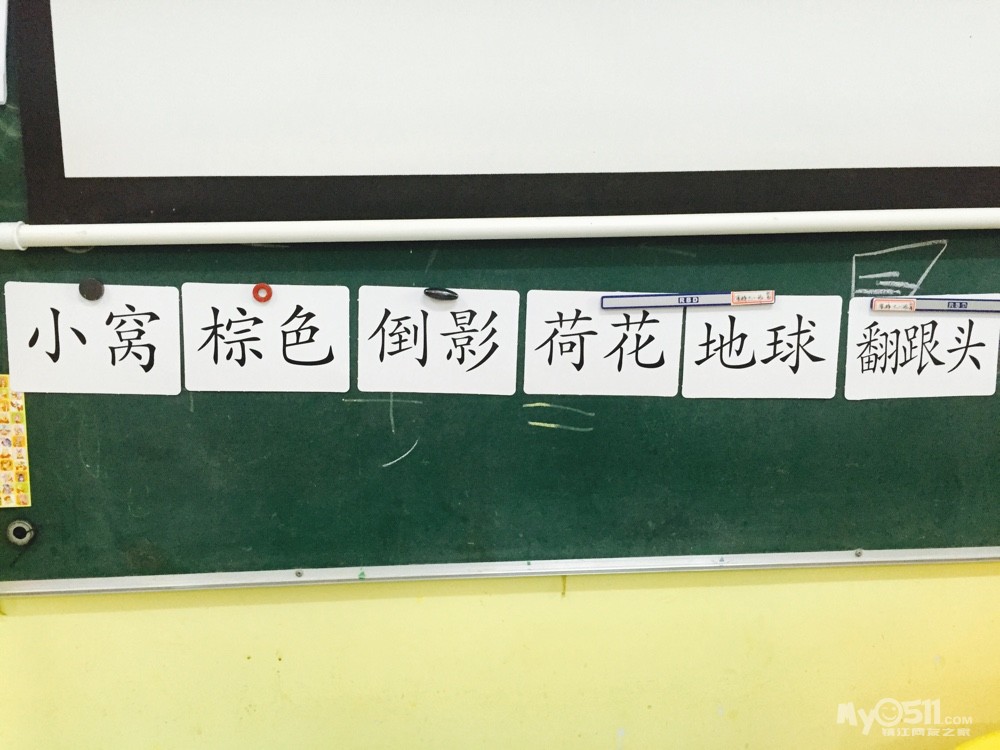 小窝
棕色
倒影
荷花
地球
翻跟头
My0511.COM
镇江网友之家